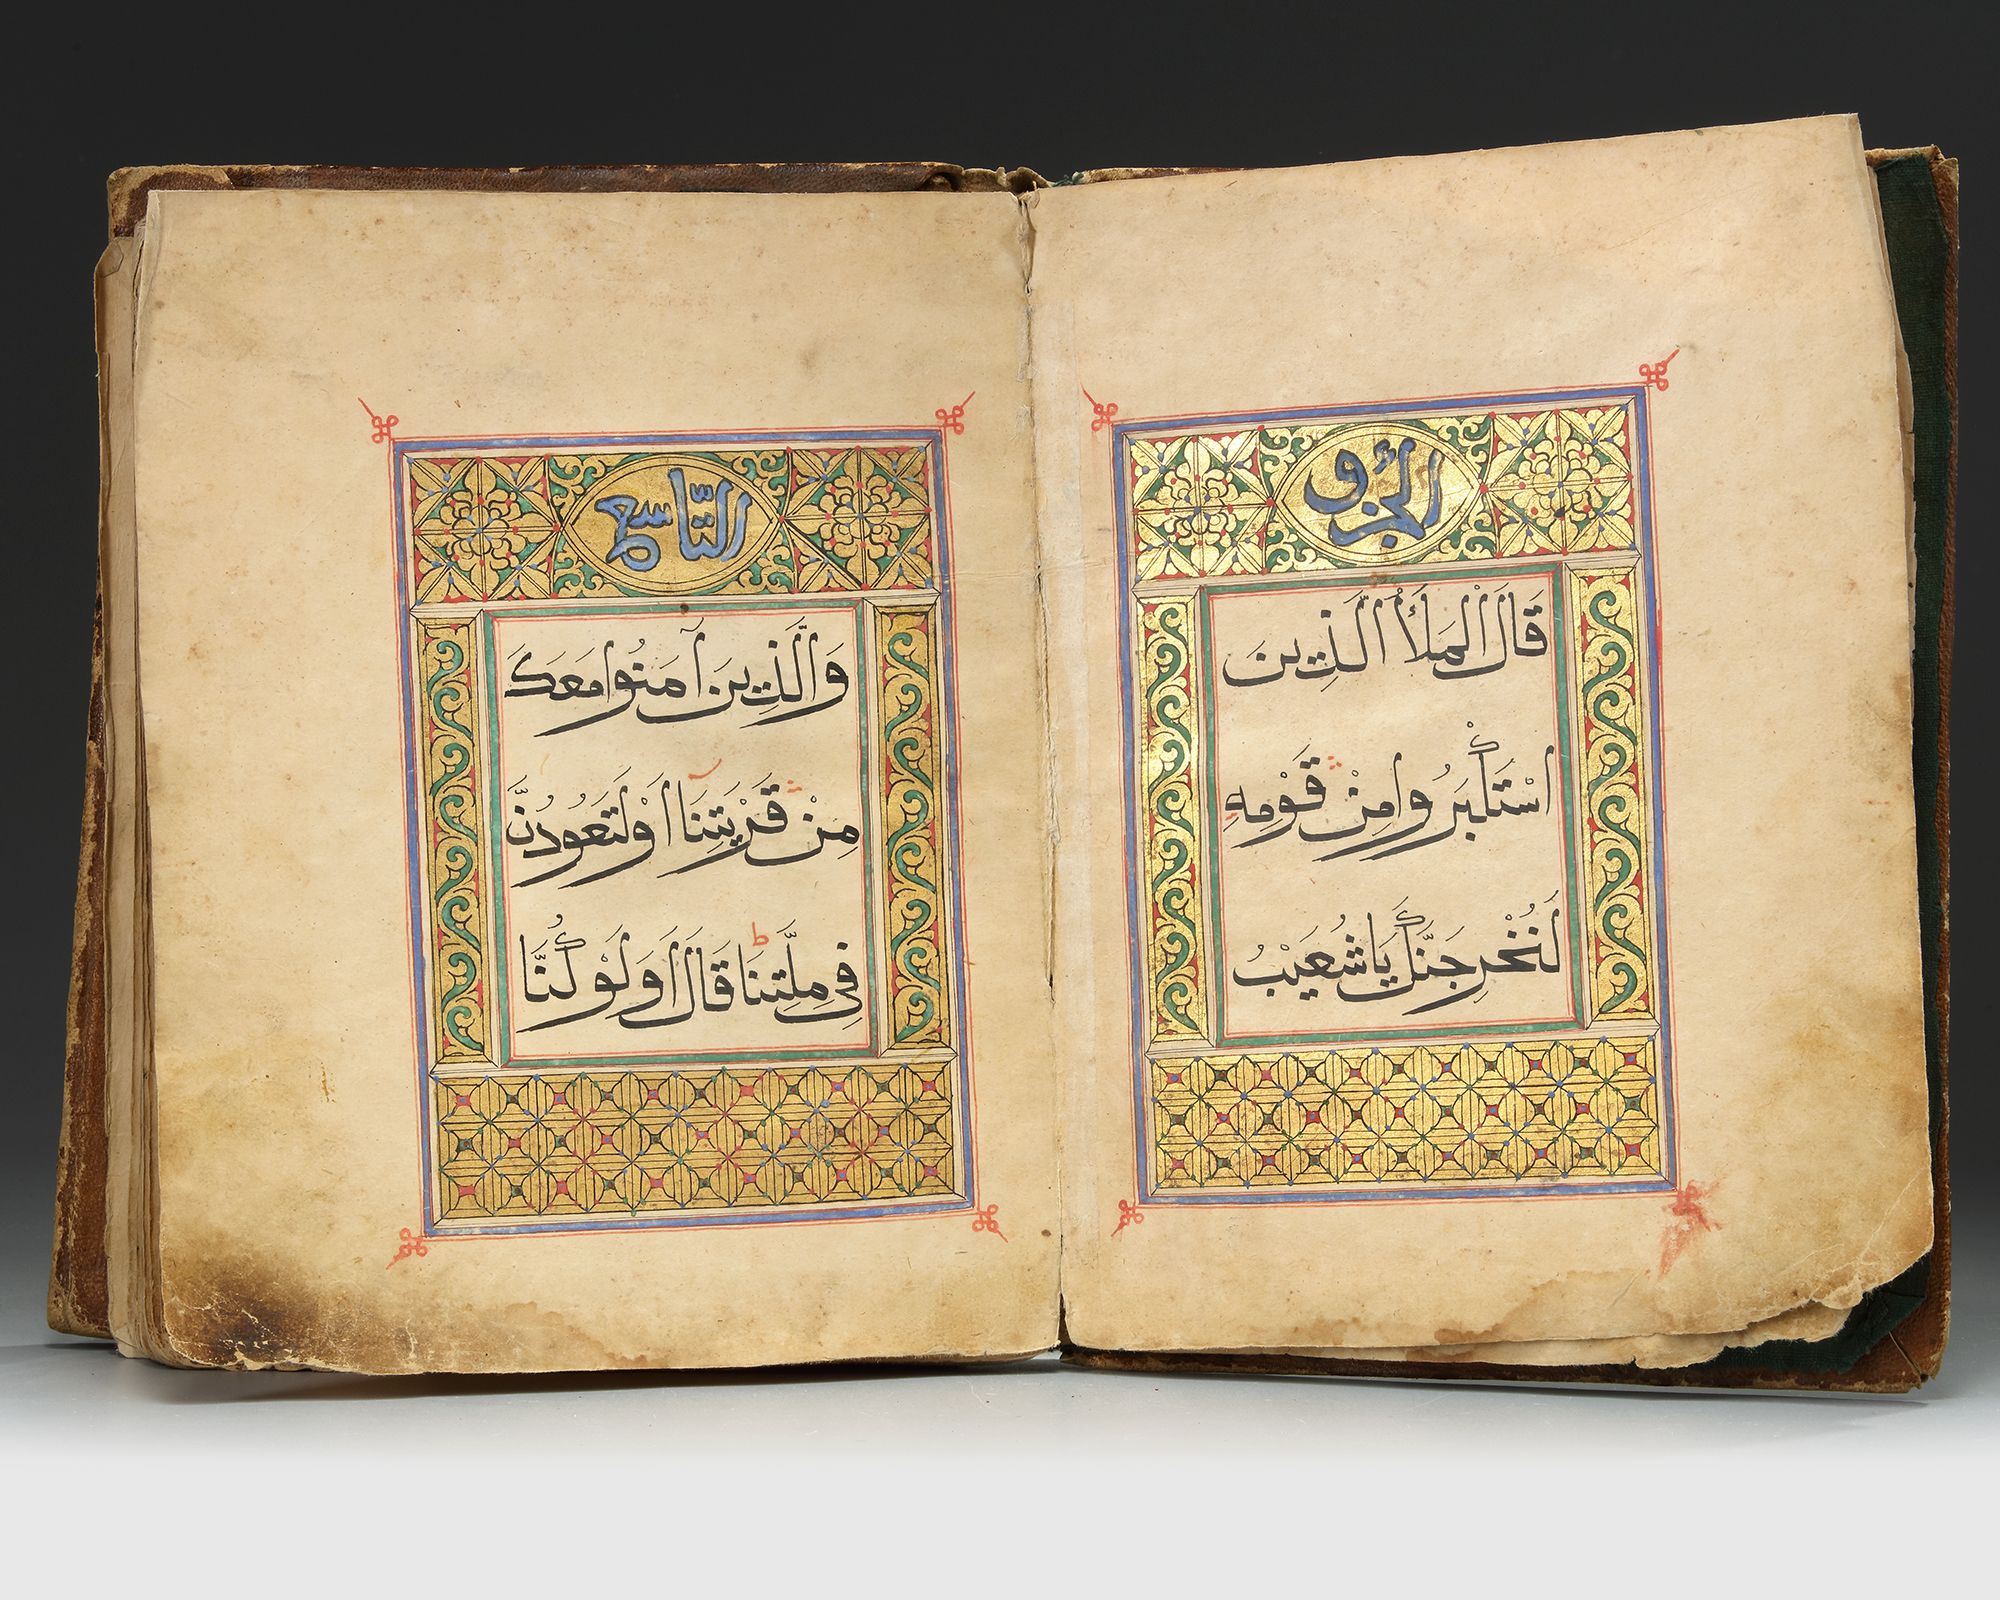 الجزؤ
قَالَ الْمَلَأُ الَّذِينَ
اسْتَكْبَرُوا مِنْ قَوْمِهِ
لَنُخْرِجَنَّكَ يَا شُعَيْبُ
التَّاسِع
وَالَّذِينَ آمَنُوا مَعَكَ
مِنْ قَرْيَتِنَا أَوْ لَتَعُودُنَّ
فِي مِلَّتِنَا ط قَالَ أَوَلَوْ كُنَّا